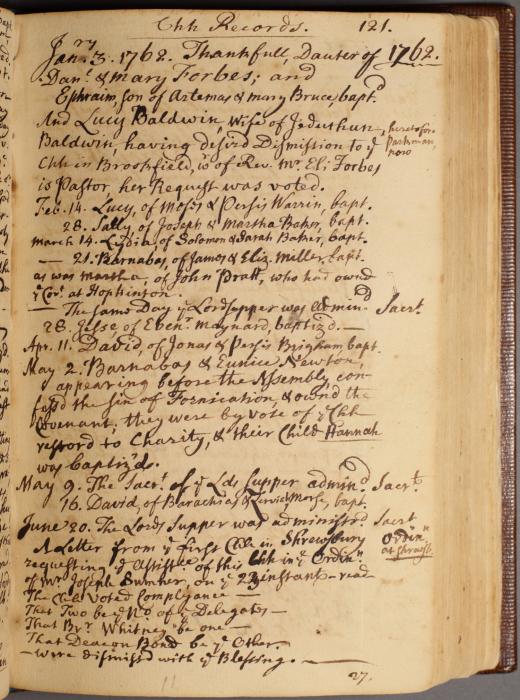 Chh Records. 121.
Janry 3. 1762. Thankfull, Dauter of 1762.
Danl & mary Forbes; and
Ephraim, son of Artemas & mary Bruce, baptd
And Lucy Baldwin, Wife of Jeduthun
Baldwin, having desir'd Dismission to ye heretofore Parkman, now
Chh in Brookfield, is of Rev. Mr. Eli Forbes
is Pastor, her Request was voted.
Feb. 14. Lucy, of Moses & Persis Warrin, bapt.
28. Sally, of Joseph & Martha Baker, bapt.
March 14. Lydia, of Solomon & Sarah Baker, bapt.
— 21. Barnabas, of James & Eliz. Miller, bapt.
as was Martha, of John Pratt, who had ownd
ye Covt. at Hopkinton.
— The same Day ye Lords supper was admind Sacrt.
28. of Ebenr. maynard, baptizd. —
Apr. 11. David, of Jonas & Persis Brigham, bapt.
May 2. Barnabas & Eunice Newton,
appearing before the Assembly, con-
fess'd the sin of Fornication, & ownd the
Covenant; they were by vote of ye Chh
restord to Charity, & their Child Hannah
was baptizd.
May 9. The Sacrt. of ye Lds Supper admind Sacrt.
16. David, of Barachias & Morse, bapt.
June 20. The Lords Supper was administrd. Sacrt
A Letter from ye first Chh in Shrewsbury Ordinn
requesting ye Assistce of this Chh in ye Ordinn at Shrewsb.
of Mr. Joseph Sumner, on ye 23 instant — read
The Chh voted complyance —
That Two be ye No. of ye Delegates —
That Br. Whitney be one —
That Deacon Bond be ye Other.
— were dismissd with ye Blessing. —
27.